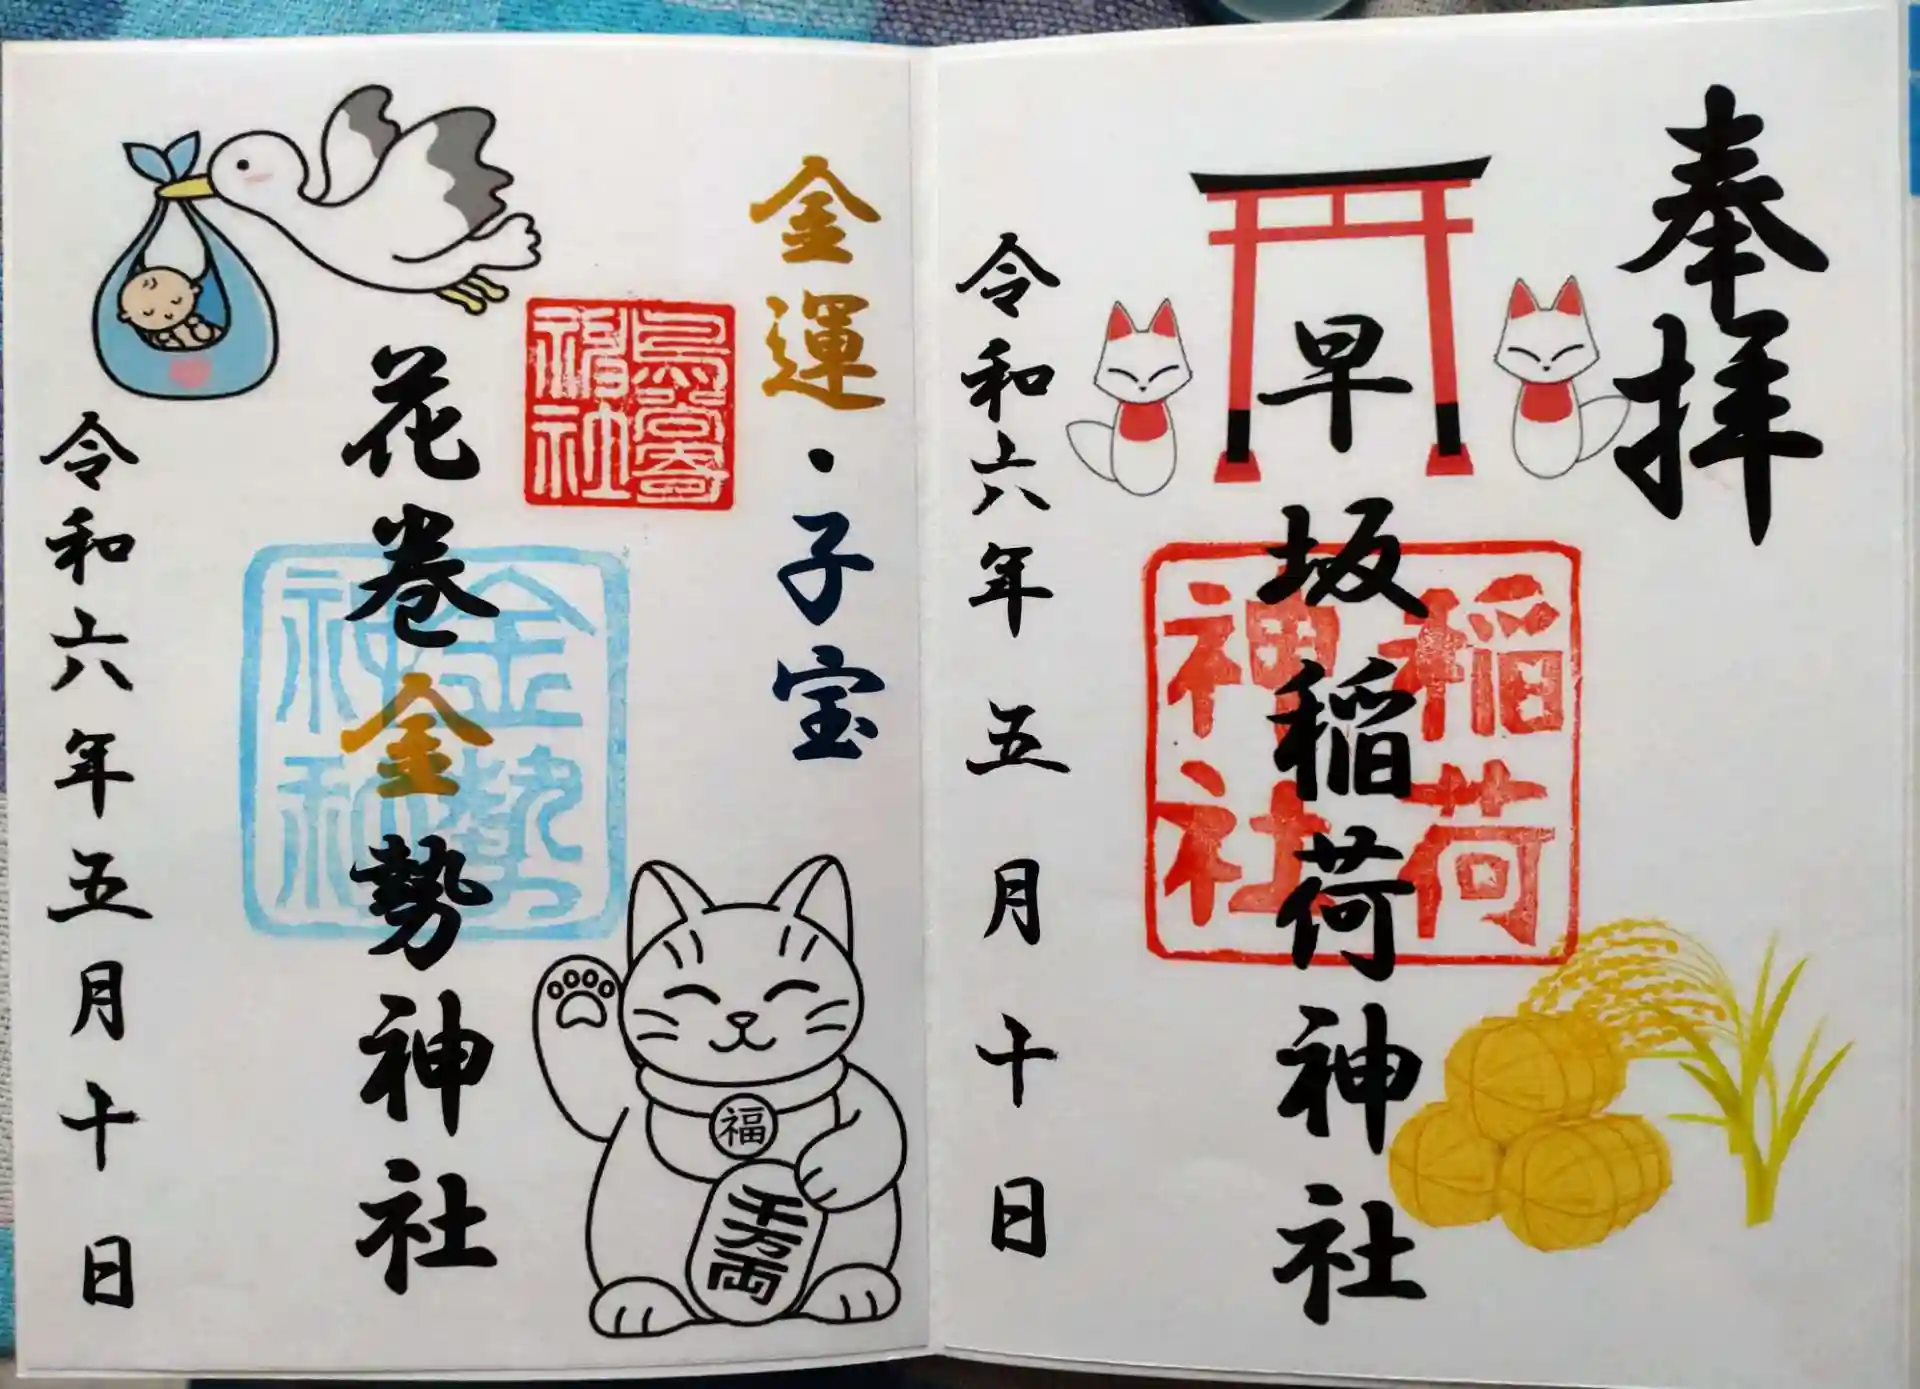 奉拝
早坂稲荷神社
稲荷
神社
令和六年五月十日
金運・子宝
烏宮寄
稲社
花巻金勢神社
金勢
神社
令和六年五月十日
福
千万両